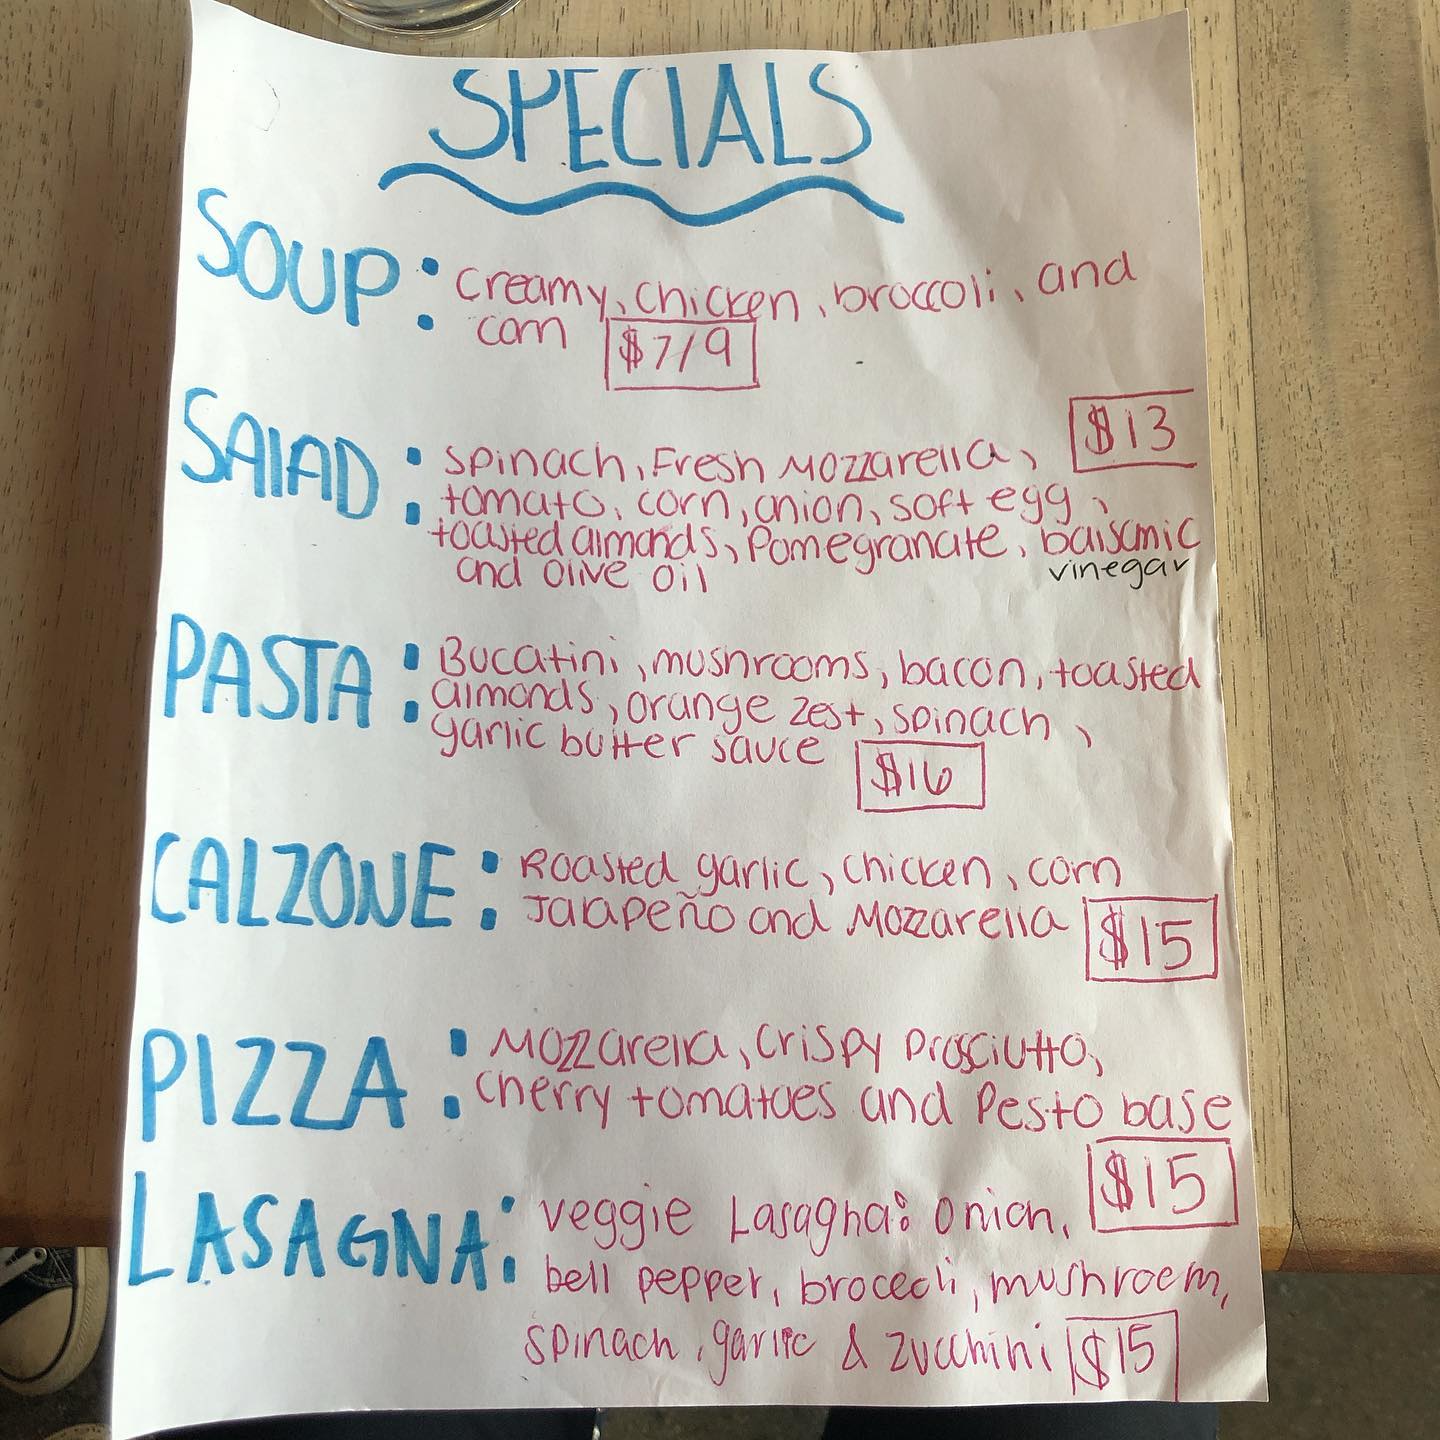 SPECIALS
SOUP: Creamy, chicken, broccoli, and
corn $7/9
SALAD: Spinach, Fresh Mozzarella, $13
tomato, corn, onion, soft egg,
toasted almonds, Pomegranate, balsamic
and olive oil vinegar
PASTA: Bucatini, mushrooms, bacon, toasted
almonds, orange zest, spinach,
garlic butter sauce $16
CALZONE: Roasted garlic, chicken, corn
Jalapeño and Mozzarella $15
PIZZA: Mozzarella, Crispy Prosciutto,
Cherry tomatoes and Pesto base
$15
LASAGNA: veggie Lasagna: onion,
bell pepper, broccoli, mushroom,
spinach, garlic & zucchini $15